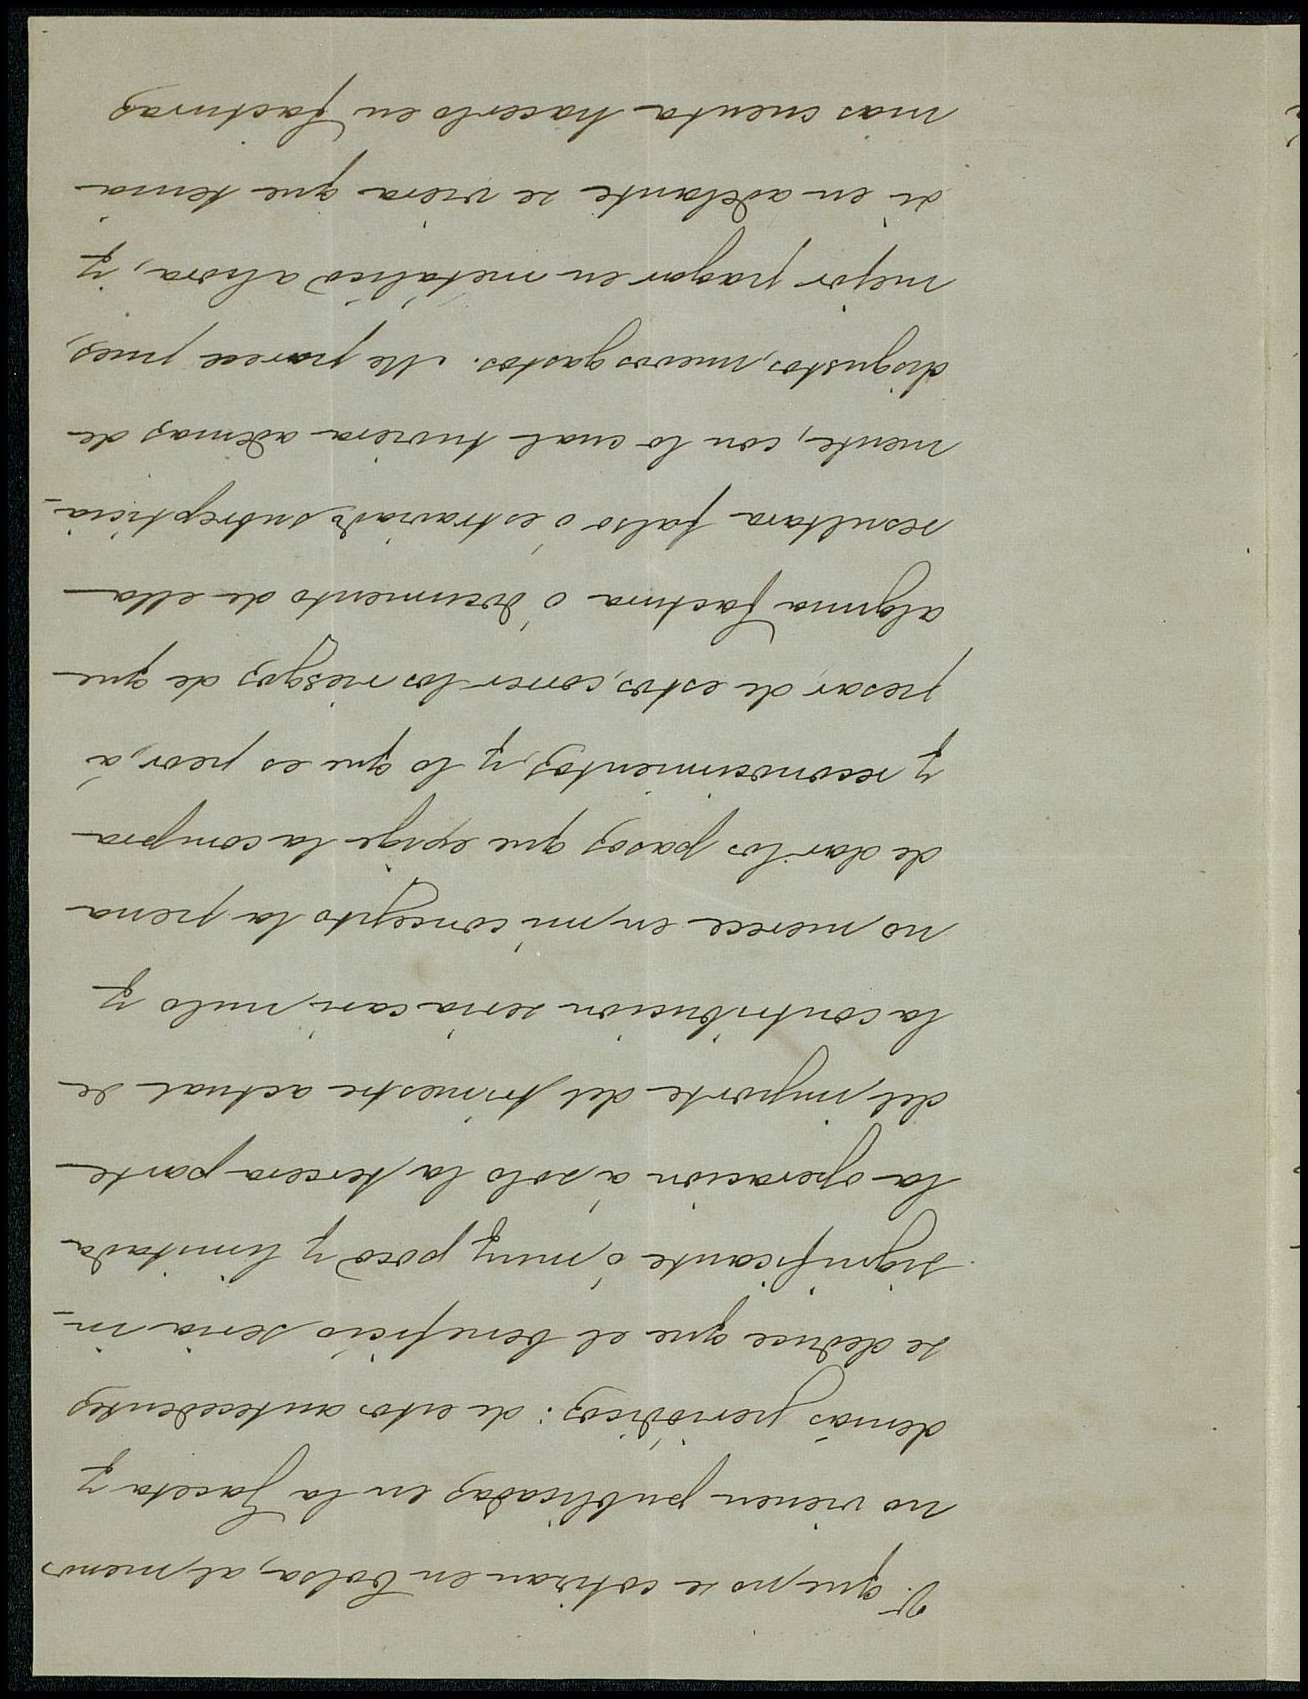 V. que no se cotizan en bolsa, al menos
no vienen publicadas en la Gaceta y
demás periódicos: de estos antecedentes
se deduce que el beneficio seria in-
significante ó muy poco y limitada
la operacion á solo la tercera parte
del importe del trimestre actual de
la contribucion seria casi nulo y
no merece en mi concepto la pena
de dar los pasos que exige la compra
y reconocimientos, y lo que es peor, á
pesar de estos, correr los riesgos de que
alguna factura ó documento de ella
resultara falso ó estraviado subrepticia-
mente, con lo cual tuviera ademas de
disgustos, nuevos gastos. Me parece pues,
mejor pagar en metalico ahora, y
si en adelante se viera que tenia
mas cuenta hacerlo en facturas